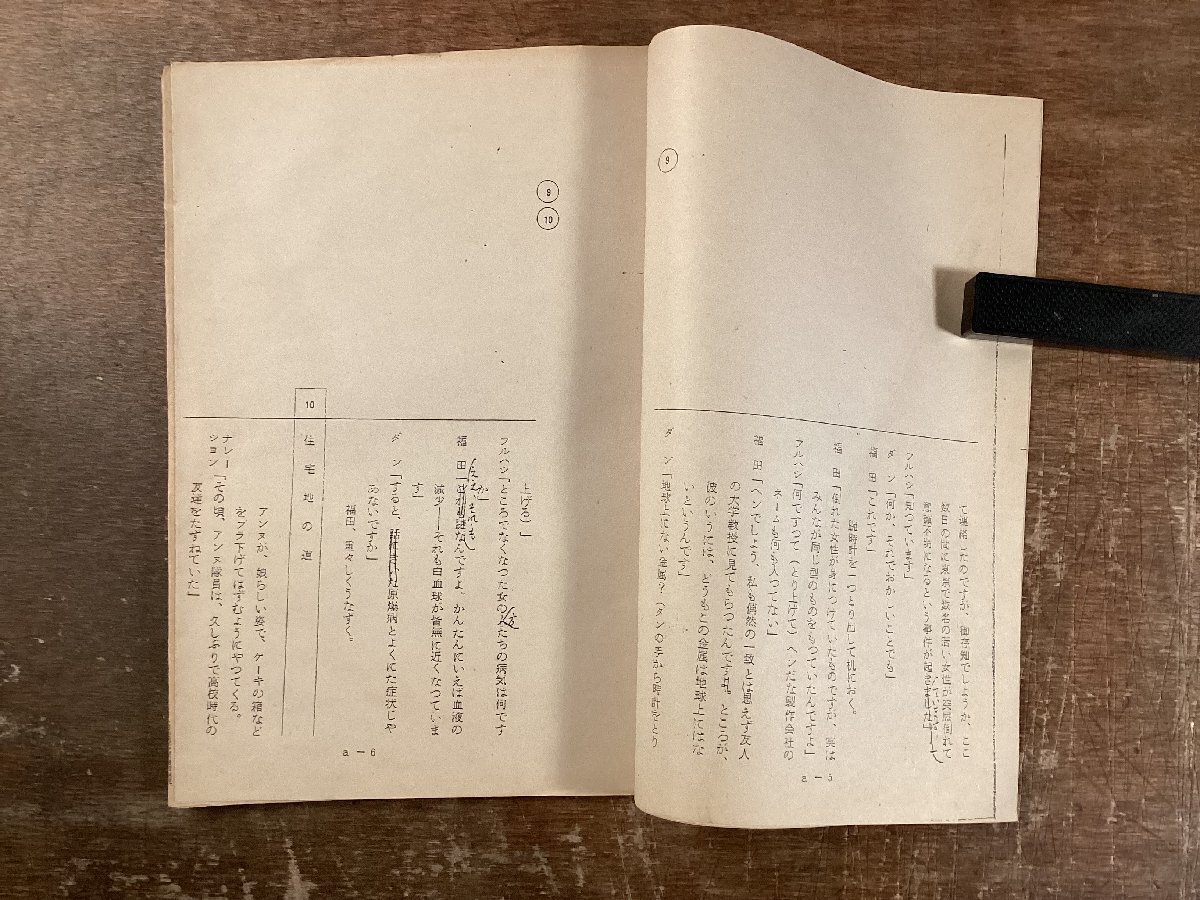 ⑨
て連絡したのですが、御存知でしようが、ここ
数日の間に東京で数名の若い女性が突然倒れて
意識不明になるという事件が起きました」
フルハシ「知つています」
ダン「何か、それでおかしいことでも」
福田「これです」
腕時計を一つとり出して机におく。
福田「倒れた女性が身につけていたものですが、実は
みんなが同じ型のものをもつていたんですよ」
フルハシ「何ですつて(とり上げて)ヘンだな製作会社の
ネームも何も入つてない」
福田「ヘンでしよう、私も偶然の一致とは思えず友人
の大学教授に見てもらつたんですョ。ところが、
彼のいうには、どうもこの金属は地球上にはな
いというんです」
ダン「地球上にない金属?(ダンの手から時計をとり
a－5
⑨
⑩
上げる)」
フルハシ「ところでなくなつた女の たちの病気は何です
か」
福田「 なんですよ、かんたんにいえば血液の
減少――それも白血球が皆無に近くなつていま
す」
ダン「すると、 原爆病とよくにた症状じや
あないですか」
福田、重々しくうなずく。
10
住宅地の道
アンヌが、娘らしい姿で、ケーキの箱など
をブラ下げてはずむようにやつてくる。
ナレーション「その頃、アンヌ隊員は、久しぶりで高校時代の
友達をたずねていた」
a－6